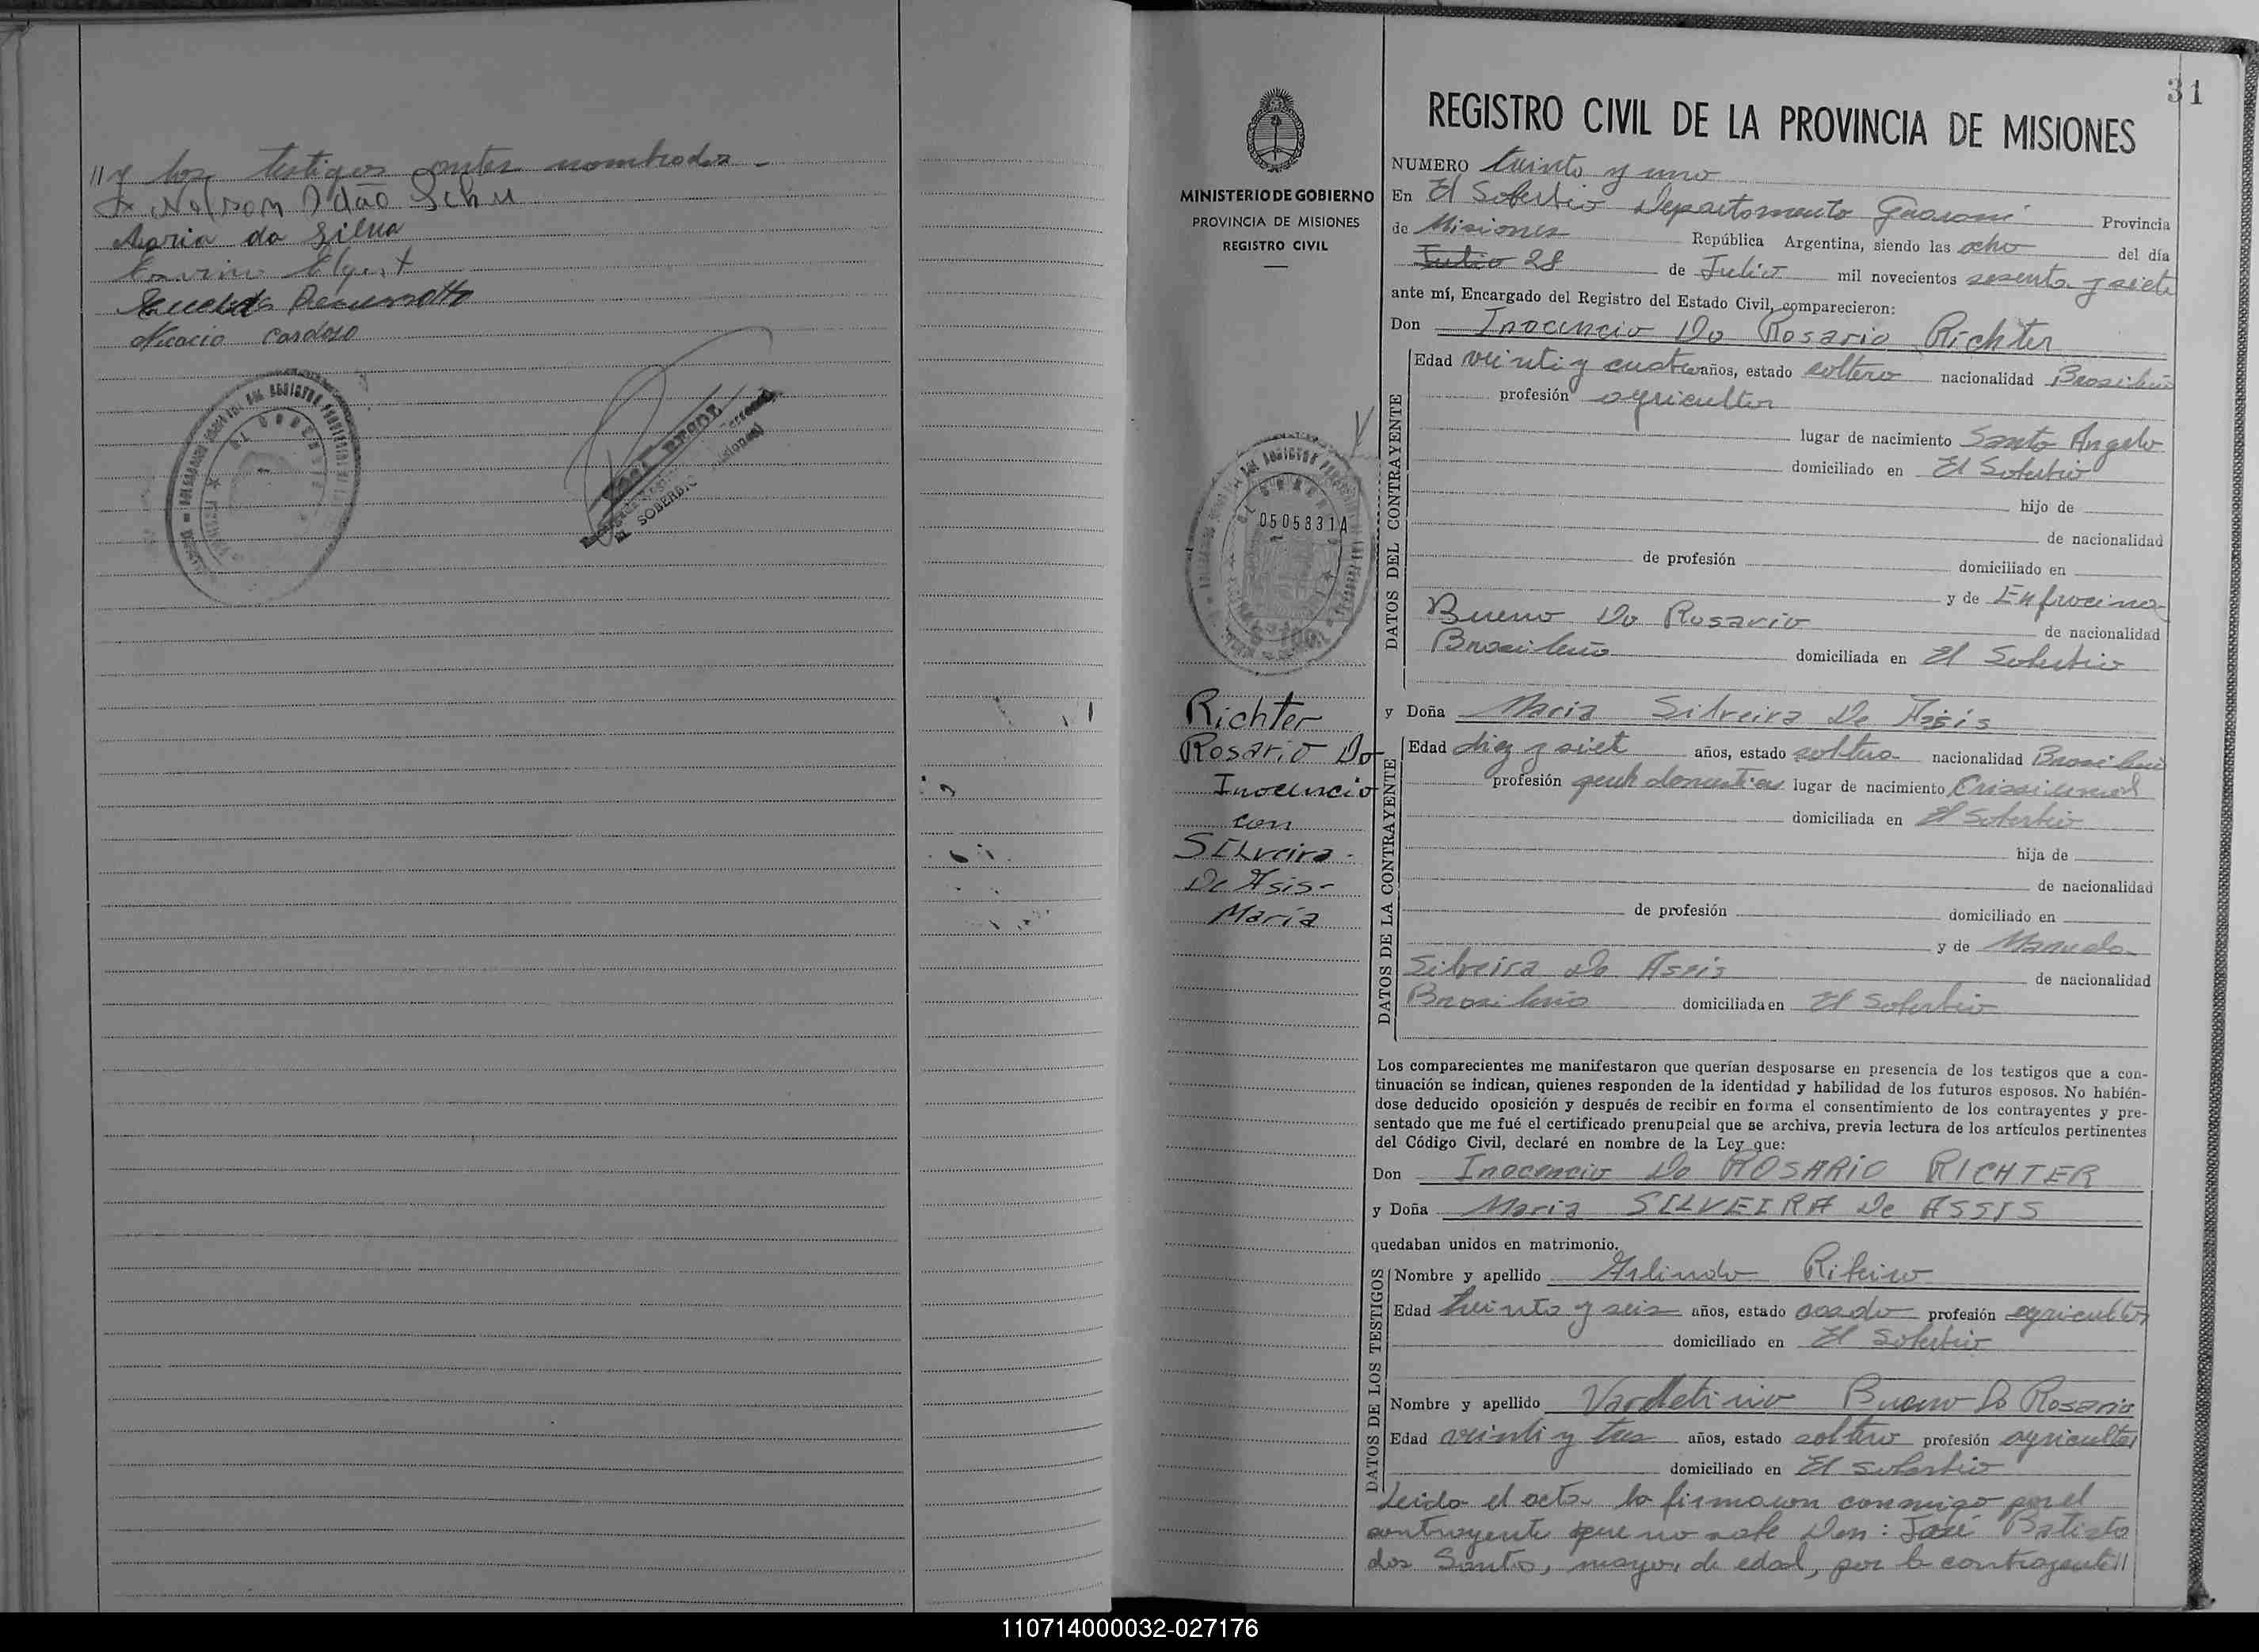 //y los testigos antes nombrados -
x Nelson Idão Schu
Maria da Silva
Nicacio Cardoso
EL SOBERBIO
31
REGISTRO CIVIL DE LA PROVINCIA DE MISIONES
MINISTERIO DE GOBIERNO
PROVINCIA DE MISIONES
REGISTRO CIVIL
0505831A
Richter
Rosario Do
Inocencio
con
SILveira -
De Asis -
María
NUMERO treinta y uno
En El Soberbio Departamento Guaraní Provincia
de Misiones República Argentina, siendo las ocho del día
Julio 28 de Julio mil novecientos sesenta y siete
ante mí, Encargado del Registro del Estado Civil, comparecieron:
Don Inocencio Do Rosario Richter
DATOS DEL CONTRAYENTE
Edad veinti y cuatro años, estado soltero nacionalidad Brasileña
profesión agricultor
lugar de nacimiento Santo Angelo
domiciliado en El Soberbio
hijo de
de nacionalidad
de profesión domiciliado en
y de Enfrocina
Bueno Do Rosario de nacionalidad
Brasileña domiciliada en El Soberbio
y Doña Maria Silveira De Assis
DATOS DE LA CONTRAYENTE
Edad diez y siete años, estado soltera nacionalidad Brasileña
profesión domesticos lugar de nacimiento Crissiumal
domiciliada en El Soberbio
hija de
de nacionalidad
de profesión domiciliado en
y de Manuela
Silveira De Assis de nacionalidad
Brasileña domiciliada en El Soberbio
Los comparecientes me manifestaron que querían desposarse en presencia de los testigos que a con-
tinuación se indican, quienes responden de la identidad y habilidad de los futuros esposos. No habién-
dose deducido oposición y después de recibir en forma el consentimiento de los contrayentes y pre-
sentado que me fué el certificado prenupcial que se archiva, previa lectura de los artículos pertinentes
del Código Civil, declaré en nombre de la Ley que:
Don Inocencio Do ROSARIO RICHTER
y Doña Maria SILVEIRA De ASSIS
quedaban unidos en matrimonio.
DATOS DE LOS TESTIGOS
Nombre y apellido Arlindo Ribeiro
Edad treinta y seis años, estado casado profesión agricultor
domiciliado en El Soberbio
Nombre y apellido Vardelirio Bueno Do Rosario
Edad veinti y tres años, estado soltero profesión agricultor
domiciliado en El Soberbio
Leida el acta la firmaron conmigo por el
contrayente que no sabe Don: José Batista
dos Santos, mayor de edad, por la contrayente//
110714000032-027176